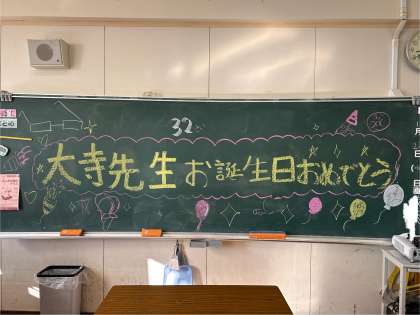 32
大寺先生お誕生日おめでとう